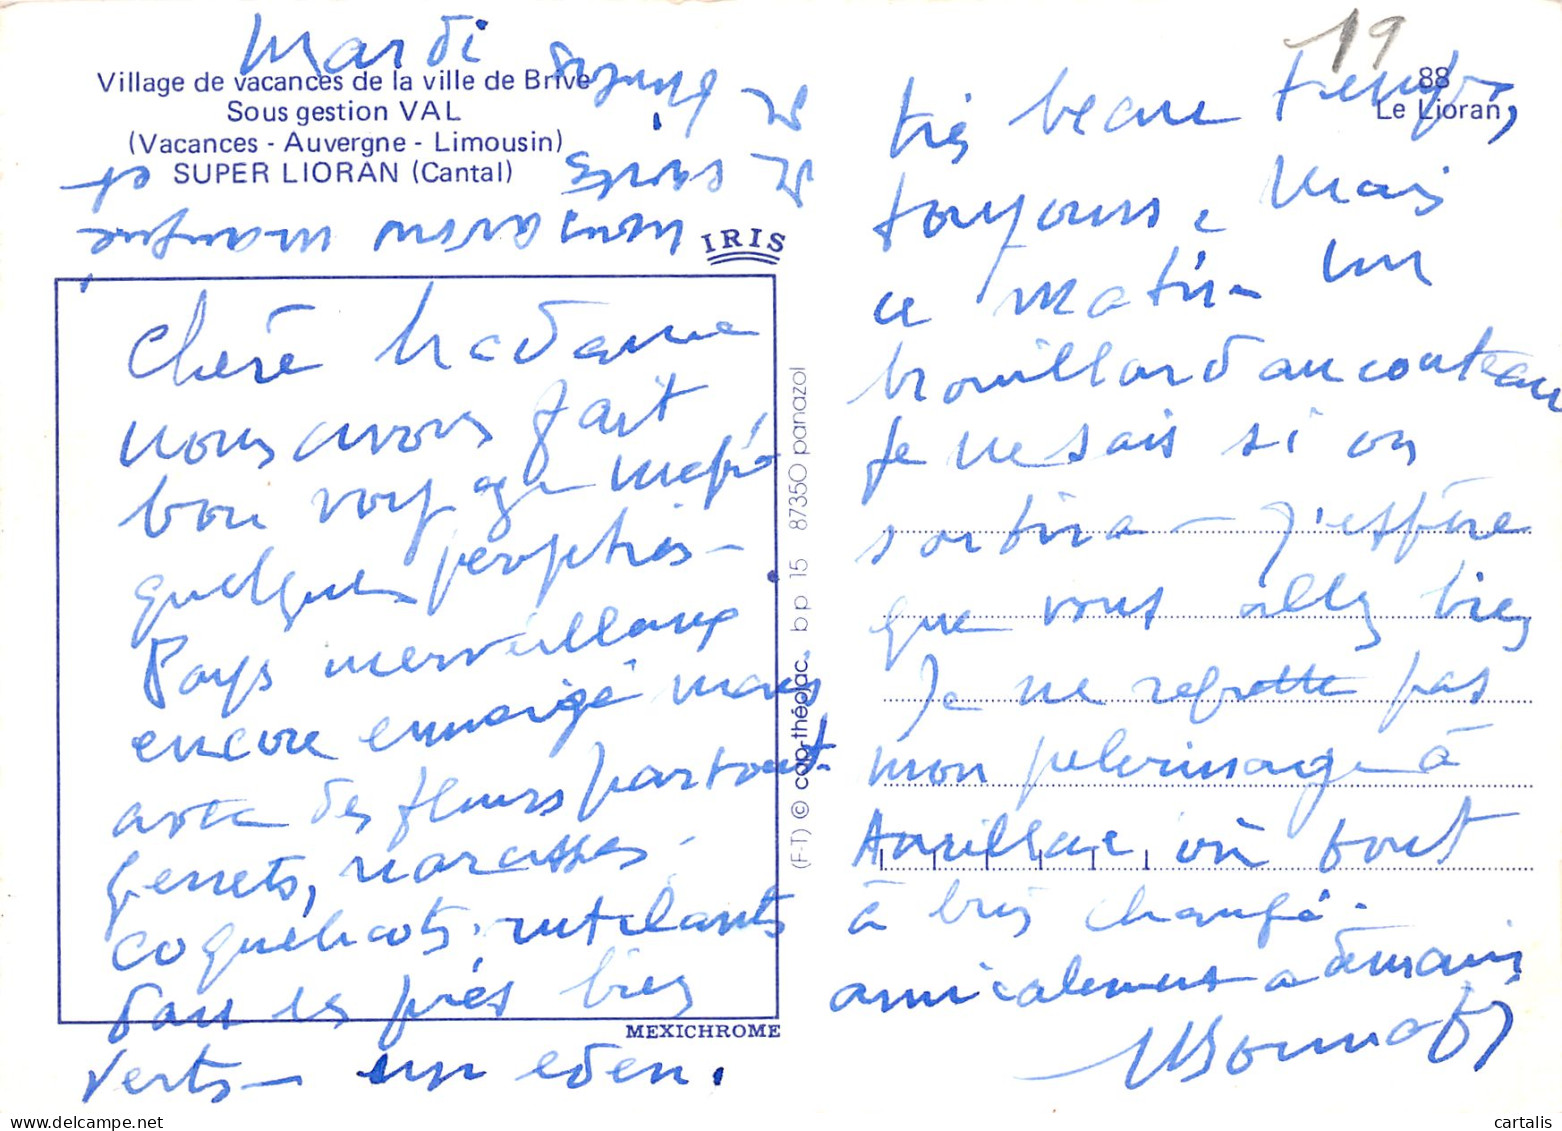 Mardi
Village de vacances de la ville de Brive
Sous gestion VAL
(Vacances - Auvergne - Limousin)
SUPER LIORAN (Cantal)
nous avons manqué
de cartes et
de timbres
IRIS
Chère Madame
nous avons fait
bon voyage malgré
quelques
Pays merveilleux
encore enneigé mais
avec des fleurs partout.
genets, narcisses -
coquelicots rutilants
dans les prés bien
verts - un eden.
MEXICHROME
(F-T) © cap-théojac, bp 15 87350 panazol
19
88
Le Lioran
très beau temps,
toujours, mais
ce matin un
brouillard au couteau
Je ne sais si on
sortira - J'espère
que vous allez bien
Je ne regrette pas
mon pelerinage à
Aurillac où tout
a bien changé.
amicalement a demain